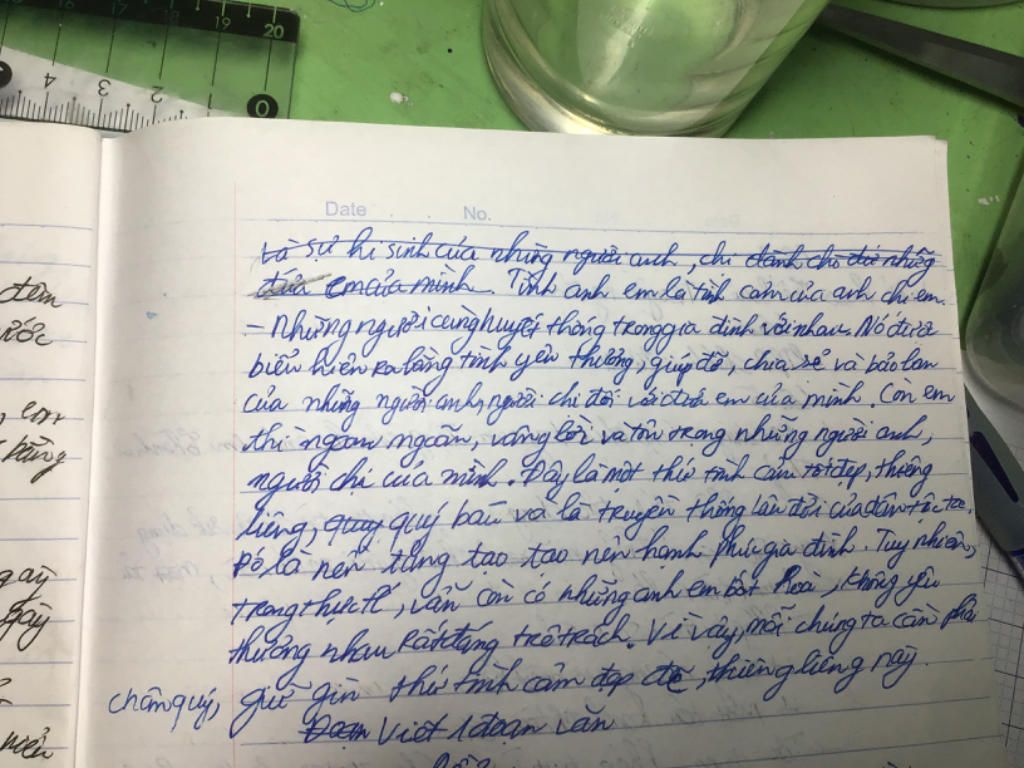 20
19
18
17
4
3
2
1
0
Date
No.
và sự hi sinh của những người anh, chị dành cho đứ những
đứa em của mình. Tình anh em là tình cảm của anh chị em.
- Những người cùng huyết thống trong gia đình với nhau. Nó được
biểu hiện ra bằng tình yêu thương, giúp đỡ, chia sẻ và bảo ban
của những người anh, người chị đối với đứa em của mình. Còn em
thì ngoan ngoãn, vâng lời và tôn trọng những người anh,
người chị của mình. Đây là một thứ tình cảm tốt đẹp, thiêng
liêng, quay quý báu và là truyền thống lâu đời của dân tộc ta.
Đó là nền tảng tạo tạo nên hạnh phúc gia đình. Tuy nhiên,
trong thực tế, vẫn còn có những anh em bất hoà, không yêu
thương nhau rất đáng trê trách. Vì vậy, mỗi chúng ta cần phải
chân quý, giữ gìn thứ tình cảm đẹp đẽ, thiêng liêng này.
Đoạn Viết 1 đoạn văn
đêm
ước
, em
bằng
gày
gày